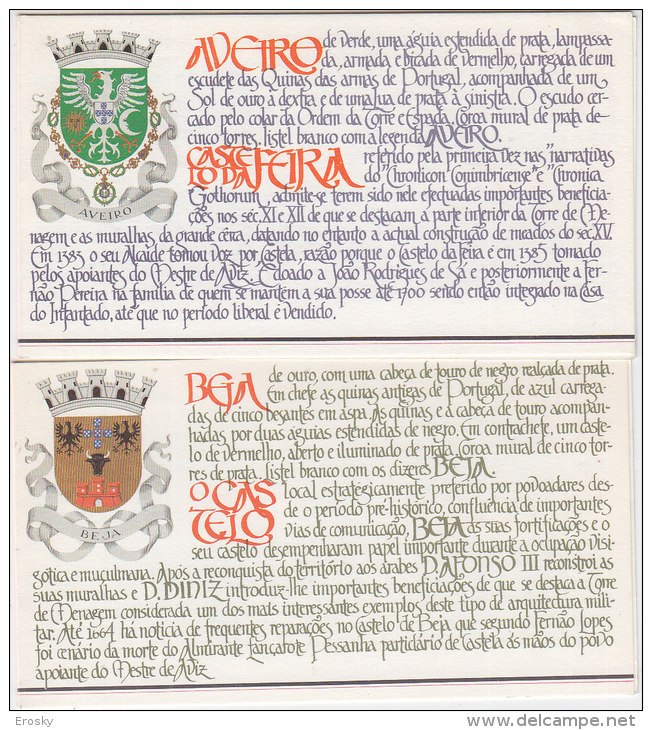 AVEIRO de verde, uma águia estendida de prata, lampassa-
da, armada e bicada de vermelho, carregada de um
escudete das Quinas das armas de Portugal, acompanhada de um
Sol de ouro à dextra e de uma lua de prata à sinistra. O escudo cer-
cado pelo colar da Ordem da Torre e Espada. Coroa mural de prata de
cinco torres, listel branco com a legenda AVEIRO.
CASTE
LO DA FEIRA referido pela primeira vez nas "narrativas
do "Chronicon Conimbricense" e "Chronica
Gothorum", admite-se terem sido nele efectuadas importantes beneficia-
ções nos séc. XI e XII de que se destacam a parte inferior da Torre de Me-
nagem e as muralhas da grande cêrca, datando no entanto a actual construção de meados do séc. XV.
Em 1383 o seu Alcaide tomou voz por Castela, razão porque o Castelo da Feira é em 1385 tomado
pelos apoiantes do Mestre de Aviz. É doado a João Rodrigues de Sá e posteriormente a Fer-
não Pereira na família de quem se mantem a sua posse até 1700 sendo então integrado na Casa
do Infantado, até que no período liberal é vendido.
AVEIRO
BEJA de ouro, com uma cabeça de touro de negro realçada de prata.
Em chefe as quinas antigas de Portugal, de azul carrega-
das de cinco besantes em aspa. As quinas e a cabeça de touro acompan-
hadas, por duas águias estendidas de negro. Em contrachefe, um caste-
lo de vermelho, aberto e iluminado de prata. Coroa mural de cinco tor-
res de prata. Listel branco com os dizeres BEJA.
O CAS
TELO local estrategicamente preferido por povoadores des-
de o período pré-histórico, confluência de importantes
vias de comunicação, BEJA as suas fortificações e o
seu castelo desempenharam papel importante durante a ocupação visi-
gótica e muçulmana. Após a reconquista do território aos árabes D. AFONSO III reconstroi as
suas muralhas e D. DINIZ introduz-lhe importantes beneficiações de que se destaca a Torre
de Menagem considerada um dos mais interessantes exemplos deste tipo de arquitectura mili-
tar. Até 1664 há notícia de frequentes reparações no Castelo de Beja que segundo Fernão Lopes
foi cenário da morte do Almirante Lançarote Pessanha partidário de Castela ás mãos do povo
apoiante do Mestre de Aviz
BEJA
Erosky
www.delcampe.net